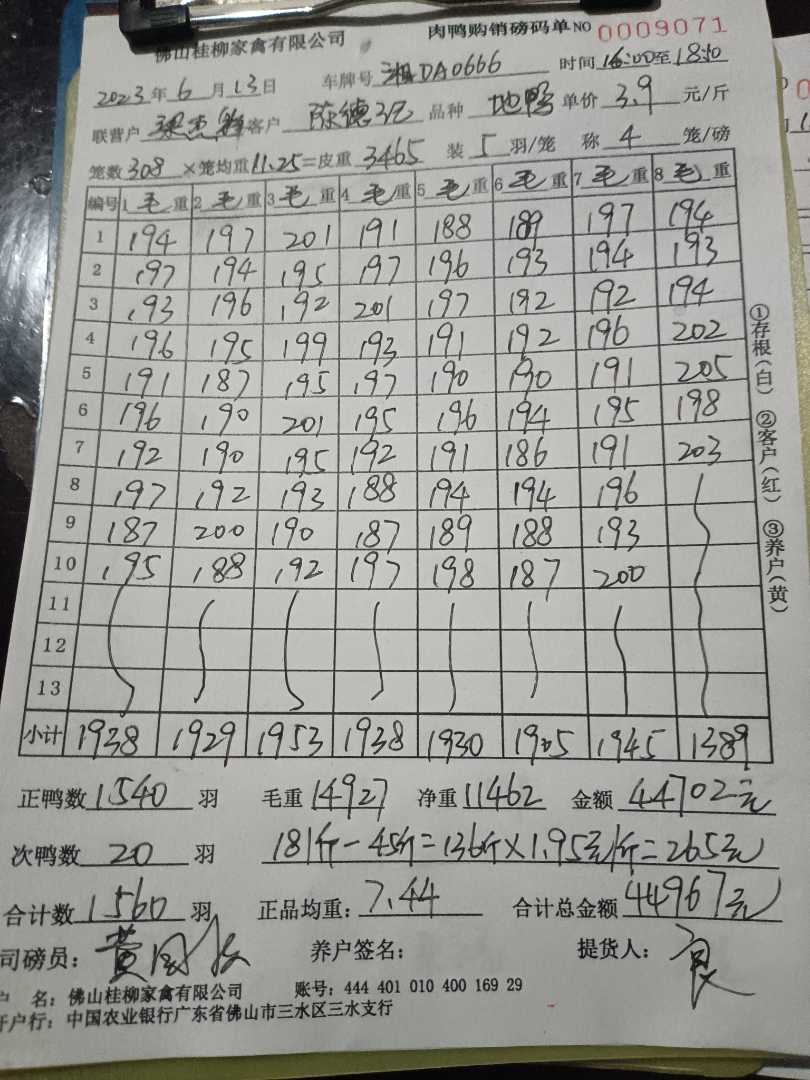 佛山桂柳家禽有限公司 肉鸭购销磅码单 NO 0009071
2023年6月13日 车牌号 湘DA0666 时间 16:00至18:10
联营户 客户 陈德 品种 地鸭 单价 3.9 元/斤
笼数 308 ×笼均重 11.25 =皮重 3465 装 5 羽/笼 称 4 笼/磅
编号 1 毛 重 2 毛 重 3 毛 重 4 毛 重 5 毛 重 6 毛 重 7 毛 重 8 毛 重
1 194 197 201 191 188 189 197 194
2 197 194 195 197 196 193 194 193
3 193 196 192 201 197 192 192 194
4 196 195 199 193 191 192 196 202
5 191 187 195 197 190 190 191 205
6 196 190 201 195 196 194 195 198
7 192 190 195 192 191 186 191 203
8 197 192 193 188 194 194 196
9 187 200 190 187 189 188 193
10 195 188 192 197 198 187 200
11
12
13
小计 1938 1929 1953 1938 1930 1905 1945 1389
①存根(白) ②客户(红) ③养户(黄)
正鸭数 1540 羽 毛重 14927 净重 11462 金额 44702元
次鸭数 20 羽 181斤-45斤=136斤×1.95元/斤=265元
合计数 1560 羽 正品均重: 7.44 合计总金额 44967元
司磅员: 黄 养户签名: 提货人: 良
户 名: 佛山桂柳家禽有限公司 账号: 444 401 010 400 169 29
开户行: 中国农业银行广东省佛山市三水区三水支行